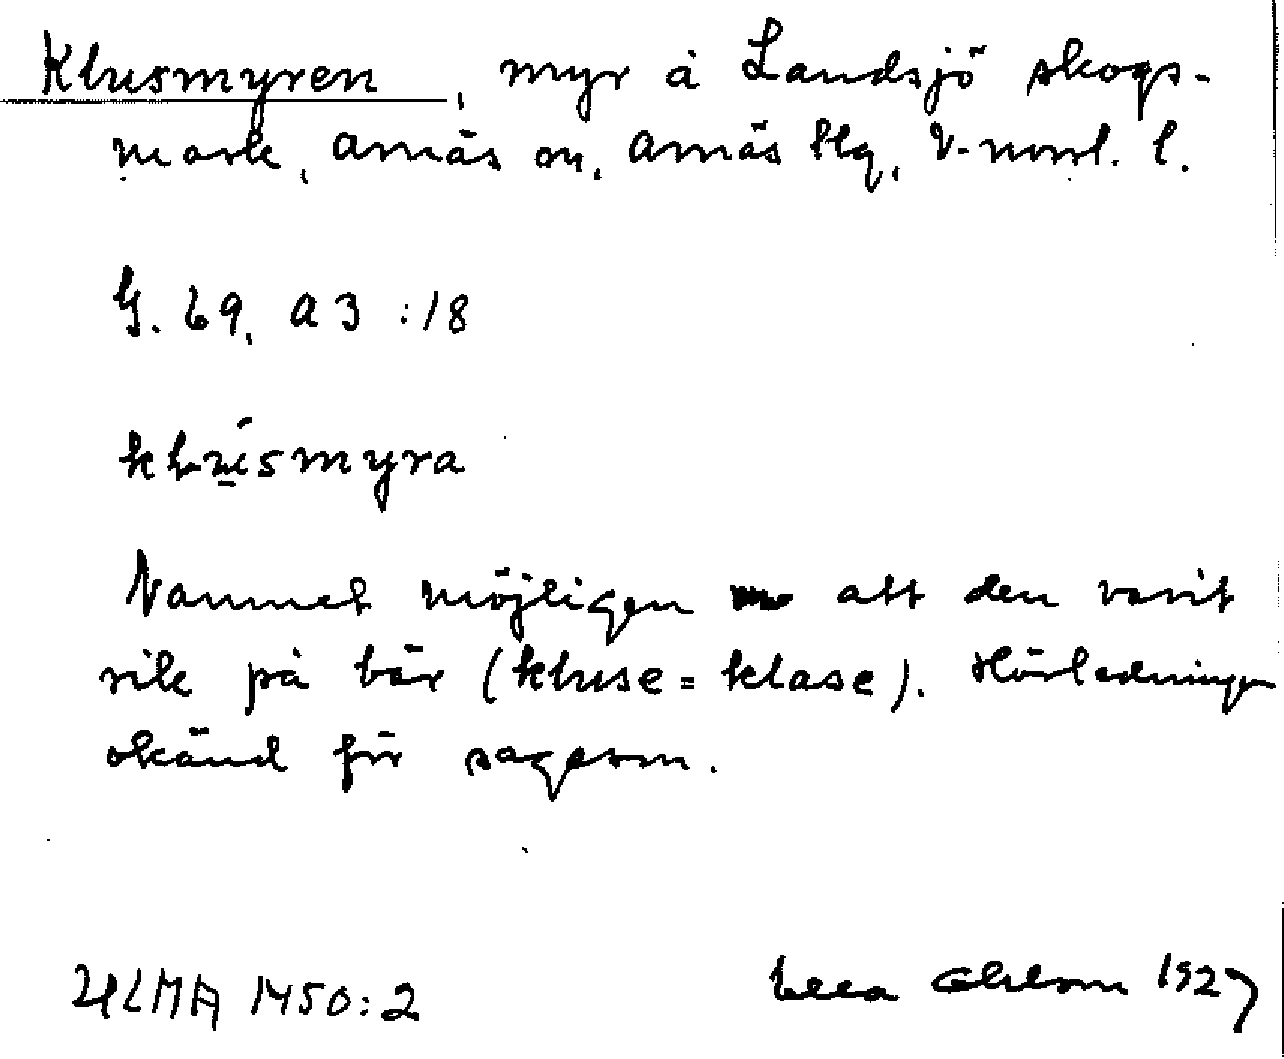 Klusmyren, myr å Landsjö skogs-
mark, Arnäs sn, Arnäs tlg, V-norrl. l.
G. 69. A3 :18
klusmyra
Namnet möjligen att den varit
rik på bär (kluse = klase). Härledningen
okänd för sagesm.
ULMA 1450:2
1927